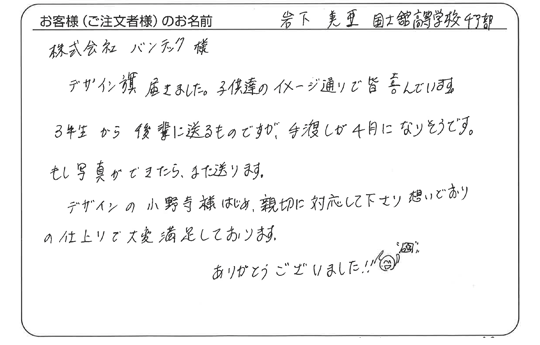 お客様(ご注文者様)のお名前 岩下 恵亜 国士舘高等学校チア部
株式会社 バンテック 様
デザイン旗 届きました。子供達のイメージ通りで皆 喜んでいます
3年生 から 後輩に送るものですが、手渡しが4月に なりそうです。
もし写真ができたら、また送ります。
デザインの 小野寺様はじめ、親切に対応して下さり 想いどおり
の仕上りで大変満足しております。
ありがとうございました!!